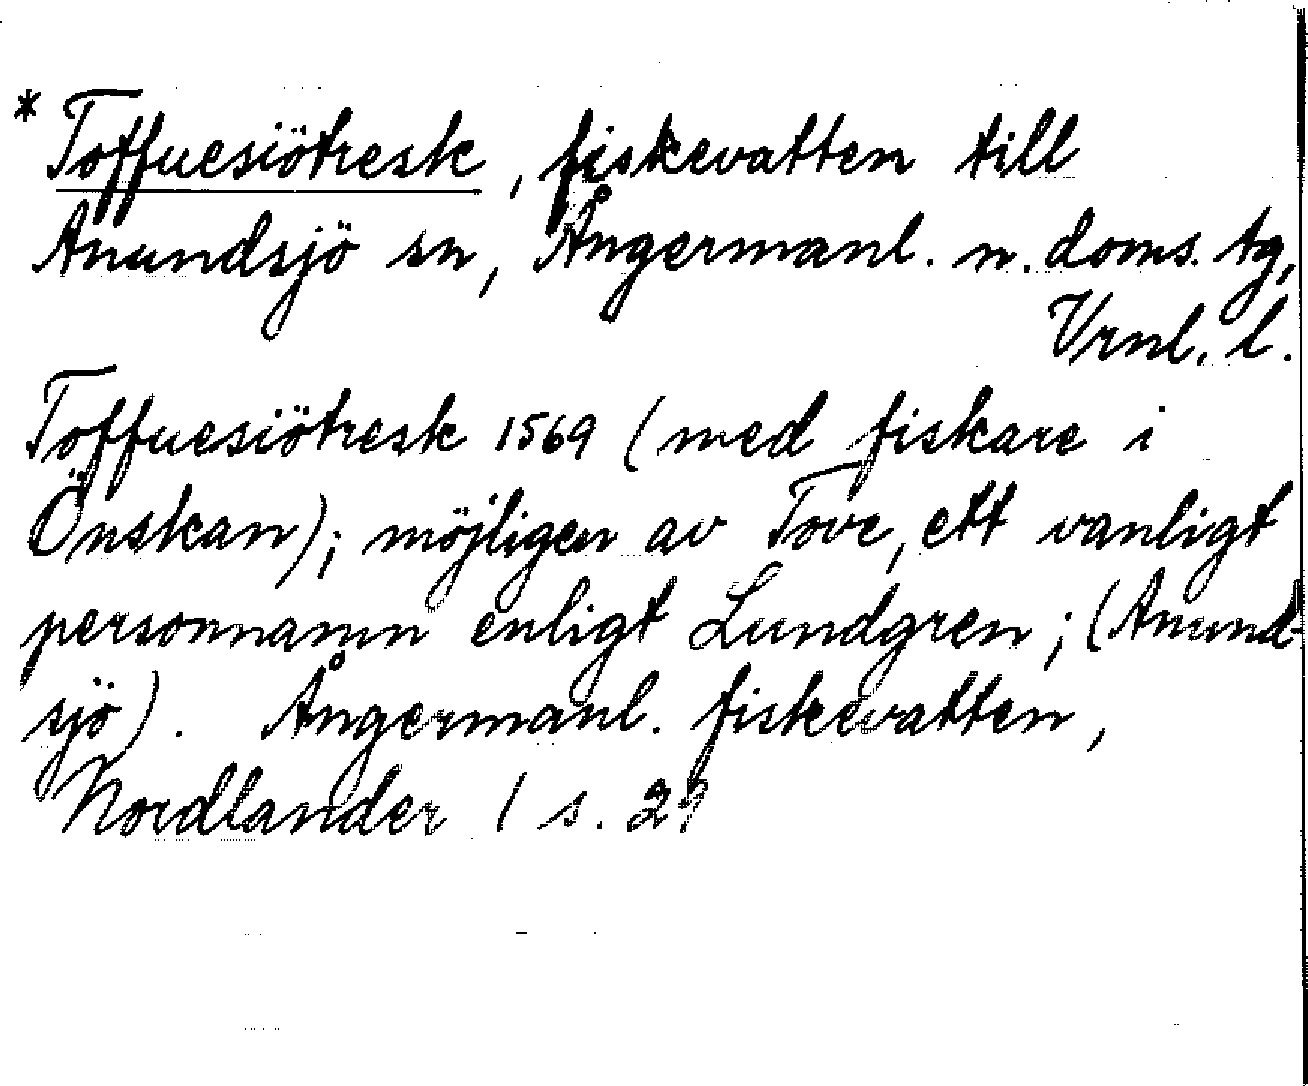 * Toffuesiötresk, fiskevatten till
Anundsjö sn, Ångermanl. n. doms. tg,
Vrnl. l.
Toffuesiötresk 1569 (med fiskare i
Önskan); möjligen av Tove, ett vanligt
personnamn enligt Lundgren; (Anund-
sjö). Ångermanl. fiskevatten,
Nordlander 1 s. 29